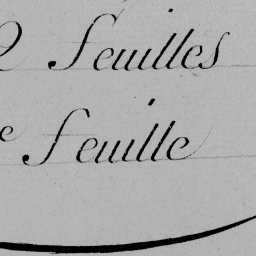 2 feuilles
e feuille